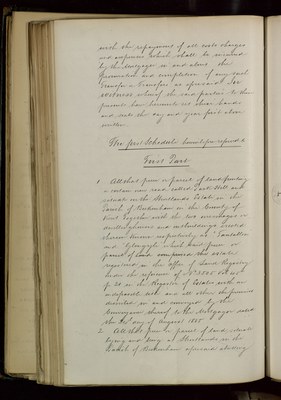 with the repayment of all costs charges
and expenses which shall be incurred
by the Mortgagor in and about the
preparation and completion of any such
Transfer or Transfers as aforesaid In
witness whereof the said parties to these
presents have hereunto set their hands
and seals the day and year first above
written
The first Schedule hereinbefore referred to
First Part
1. All that piece or parcel of land fronting
a certain new road called Park Hill and
situate on the Shortlands Estate in the
Parish of Beckenham in the County of
Kent Together with the two messuages or
dwellinghouses and outbuildings erected
thereon known respectively as
and which said piece or
parcel of land comprises the estate
registered in the Office of Land Registry
under the reference of No
p. 21 in the Register of Estates with an
indefeasible title and all other the premises
described in and conveyed by the
Conveyance thereof to the Mortgagor dated
the day of August 1865
2. All that piece or parcel of land situate
lying and being at Shortlands in the
Parish of Beckenham aforesaid abutting